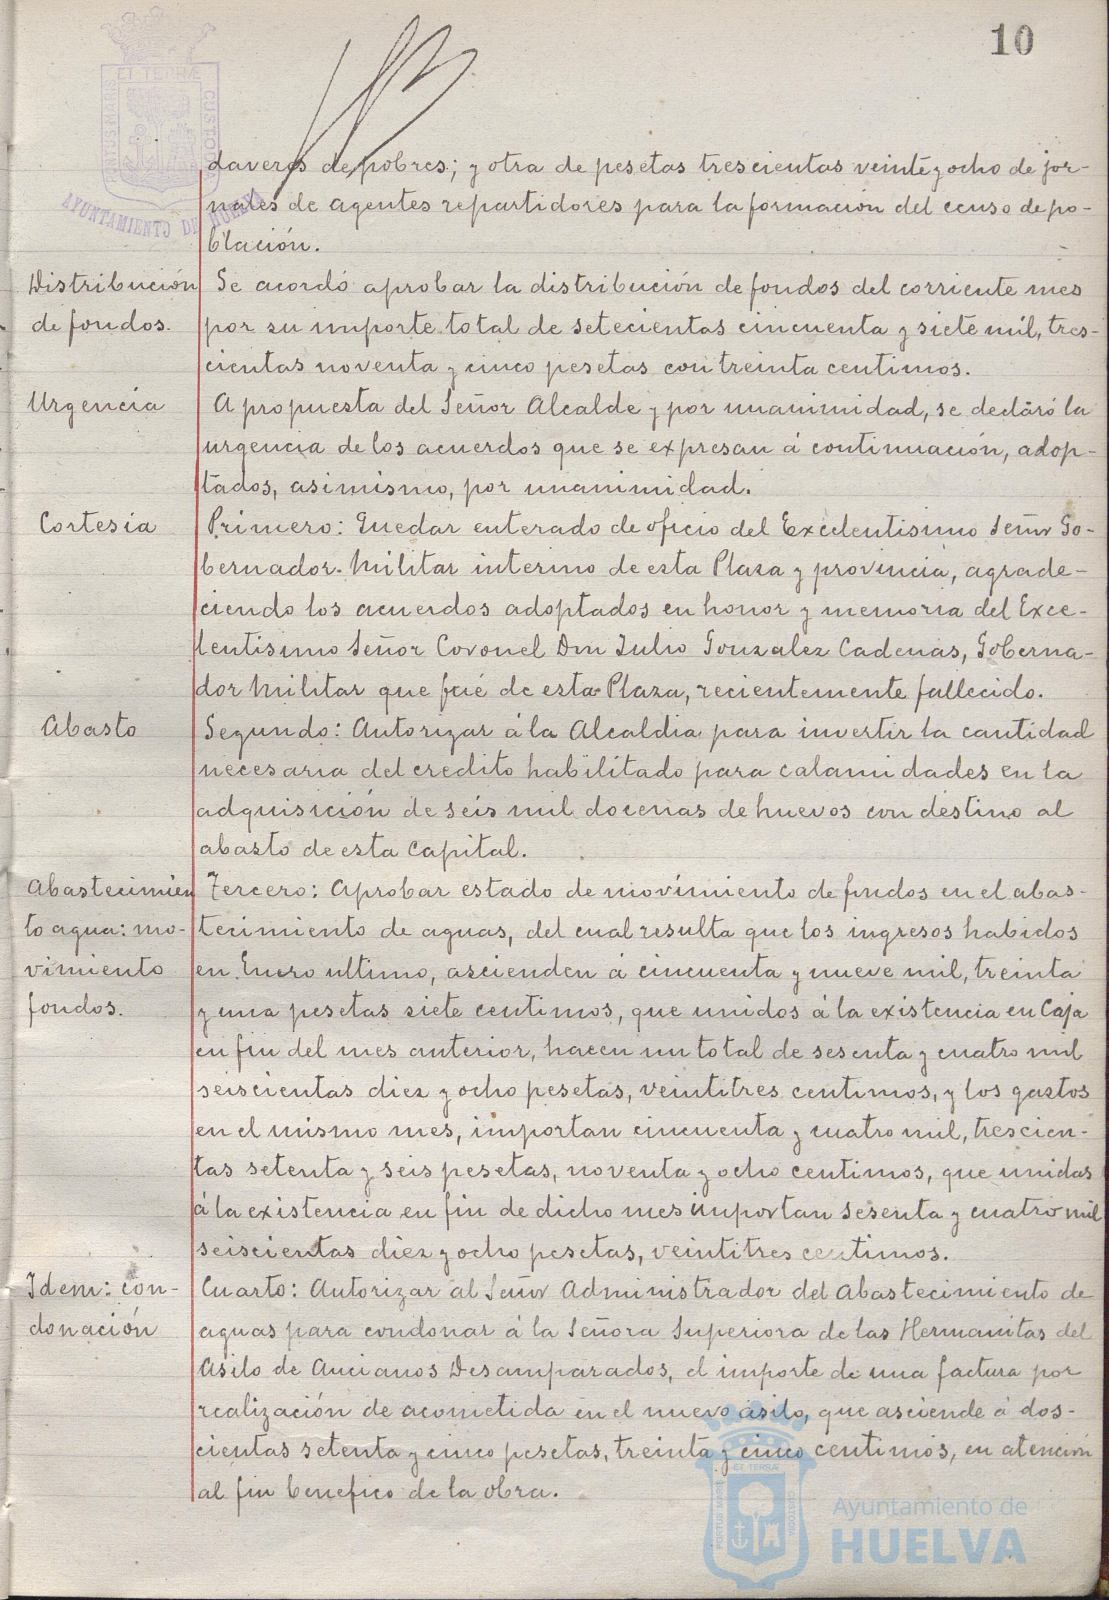 10
PORTUS MARIS ET TERRÆ CUSTODIA
AYUNTAMIENTO DE HUELVA
daveres de pobres; y otra de pesetas trescientas veinte y ocho de jor-
nales de agentes repartidores para la formación del censo de po-
blación.
Distribución
de fondos.
Se acordó aprobar la distribución de fondos del corriente mes
por su importe total de setecientas cincuenta y siete mil, tres-
cientas noventa y cinco pesetas con treinta centimos.
Urgencia
A propuesta del Señor Alcalde y por unanimidad, se declaró la
urgencia de los acuerdos que se expresan á continuación, adop-
tados, asimismo, por unanimidad.
Cortesia
Primero: Quedar enterado de oficio del Excelentisimo Señor Go-
bernador Militar interino de esta Plaza y provincia, agrade-
ciendo los acuerdos adoptados en honor y memoria del Exce-
lentisimo Señor Coronel Don Julio Gonzalez Cadenas, Goberna-
dor Militar que fué de esta Plaza, recientemente fallecido.
Abasto
Segundo: Autorizar á la Alcaldia para invertir la cantidad
necesaria del credito habilitado para calamidades en la
adquisición de seis mil docenas de huevos con destino al
abasto de esta Capital.
Abastecimien
to agua: mo-
vimiento
fondos.
Tercero: Aprobar estado de movimiento de fondos en el abas-
tecimiento de aguas, del cual resulta que los ingresos habidos
en Enero ultimo, ascienden á cincuenta y nueve mil, treinta
y una pesetas siete centimos, que unidos á la existencia en Caja
en fin del mes anterior, hacen un total de sesenta y cuatro mil
seiscientas diez y ocho pesetas, veintitres centimos, y los gastos
en el mismo mes, importan cincuenta y cuatro mil, trescien-
tas setenta y seis pesetas, noventa y ocho centimos, que unidas
á la existencia en fin de dicho mes importan sesenta y cuatro mil
seiscientas diez y ocho pesetas, veintitres centimos.
Idem: con-
donación
Cuarto: Autorizar al Señor Administrador del Abastecimiento de
aguas para condonar á la Señora Superiora de las Hermanitas del
Asilo de Ancianos Desamparados, el importe de una factura por
realización de acometida en el nuevo asilo, que asciende á dos-
cientas setenta y cinco pesetas, treinta y cinco centimos, en atención
al fin benefico de la obra.
PORTUS MARIS ET TERRÆ CUSTODIA
Ayuntamiento de
HUELVA